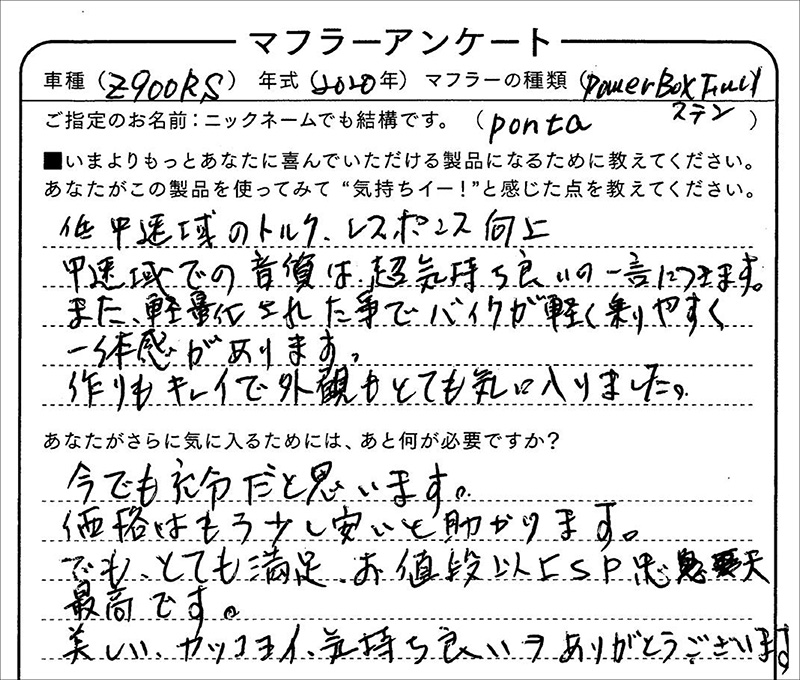 マフラーアンケート
車種（Z900RS）年式（2020年）マフラーの種類（PowerBox Full
ステン
ご指定のお名前：ニックネームでも結構です。（ponta）
■いまよりもっとあなたに喜んでいただける製品になるために教えてください。
あなたがこの製品を使ってみて“気持ちイー！”と感じた点を教えてください。
低中速域のトルク、レスポンス向上
中速域での音質は超気持ち良いの一言につきます。
また、軽量化された事でバイクが軽く乗りやすく
一体感があります。
作りもキレイで外観もとても気に入りました。
あなたがさらに気に入るためには、あと何が必要ですか？
今でも充分だと思います。
価格はもう少し安いと助かります。
でも、とても満足、お値段以上SP忠
最高です。
美しい、カッコヨイ、気持ち良いヲありがとうございます